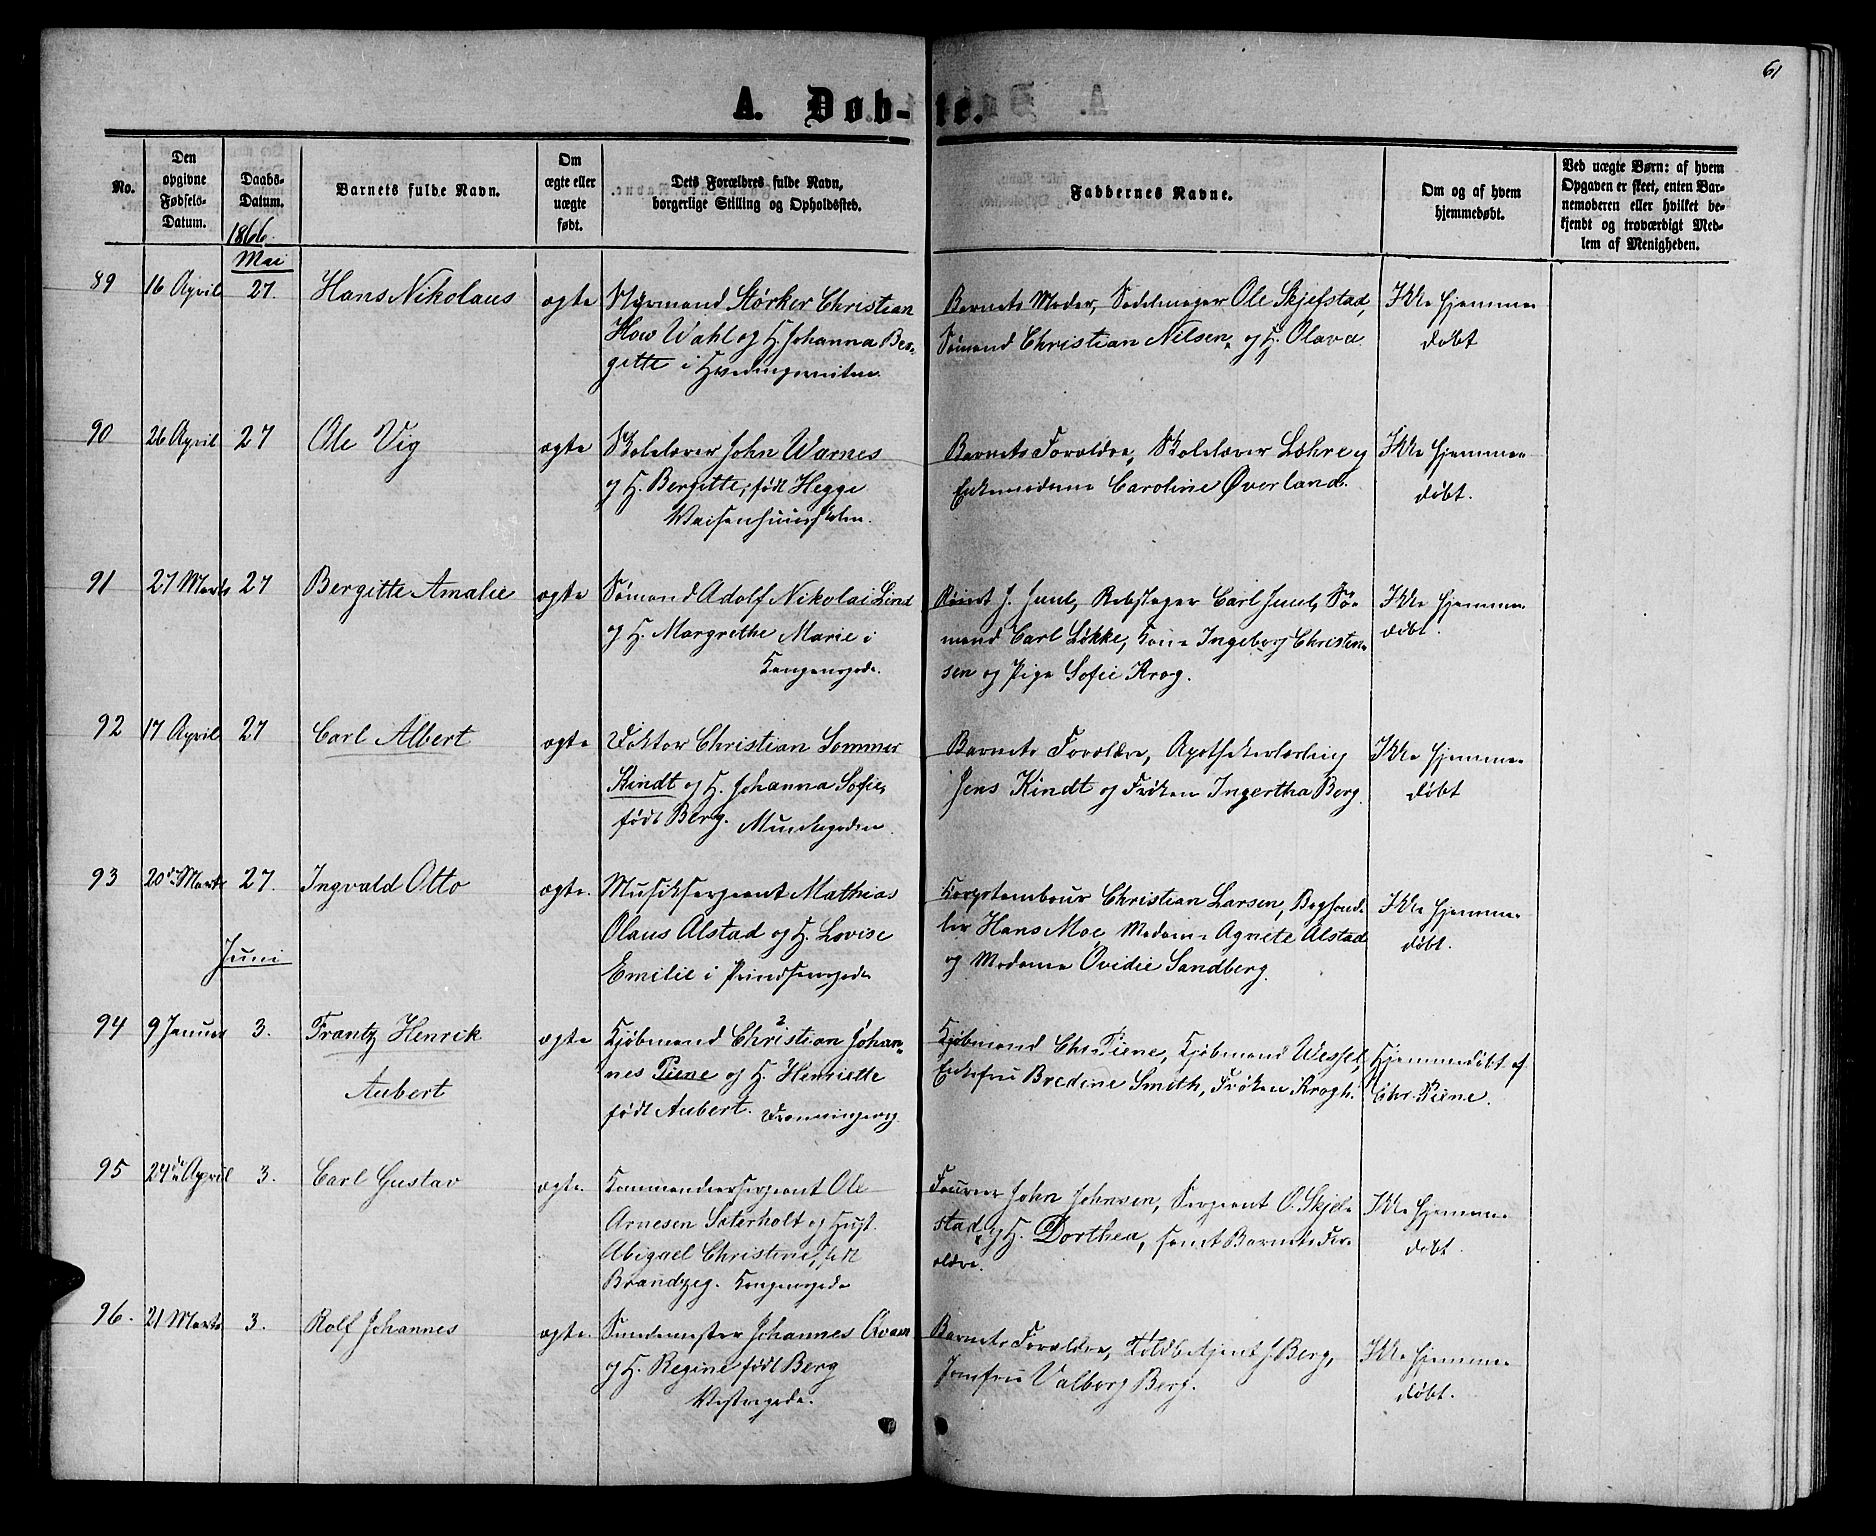 61
A. Døb- te.
No.
Den opgivne Fødsels-Datum.
Daabs-Datum.
Barnets fulde Navn.
Om ægte eller uægte født.
Dets Forældres fulde Navn, borgerlige Stilling og Opholdssted.
Faddernes Navne.
Om og af hvem hjemmedøbt.
Ved uægte Børn: af hvem Opgaven er skeet, enten Barnemoderen eller hvilket bekjendt og troværdigt Medlem af Menigheden.
1866
Mai
89 16 April 27. Hans Nikolaus ægte Styrmand Størker Christian
How Wahl og H. Johanna Ber-
gitte i
Barnets Moder, Sadelmager Ole Skjefstad,
Sømand Christian Nilsen og H. Olava
Ikke hjemme-
døbt
90 26 April 27 Ole Vig ægte Skolelærer John Warnes
og H. Bergitte, født Hegge
Waisenhuusskolen.
Barnets Forældre, Skolelærer Løhre og
Enkemadame Caroline Øverland.
Ikke hjemme-
døbt.
91 27 Marts 27 Bergitte Amalie ægte Sømand Adolf Nikolai Lind
og H. Margrethe Marie i
Kongensgade.
J. Juul, Rebslager Carl Juul, Sø-
mand Carl Løkke, Kone Ingeborg Christen-
sen og Pige Sofie Krog.
Ikke hjemme-
døbt.
92 17 April 27 Carl Albert ægte Doktor Christian Sommer
Kindt og H. Johanna Sofie,
født Berg. Munkegaden.
Barnets Forældre, Apothekerlærling
Jens Kindt og Frøken Ingertha Berg.
Ikke hjemme-
døbt
93 20de Marts 27. Ingvald Otto ægte. Musiksergeant Mathias
Olaus Alstad og H. Lovise
Emilie i Prindsensgade
Korpstambour Christian Larsen, Boghand-
ler Hans Moe, Madame Agnete Alstad
og Madame Ovidie Sandberg.
Ikke hjemme-
døbt.
Juni
94 9 Januar 3. Frantz Henrik
Aubert
ægte Kjøbmand Christian Johan-
nes Piene og H. Henriette
født Aubert.
Kjøbmand Chr. Piene, Kjøbmand Wessel,
Enkefru Bredine Smith, Frøken Krogh.
Hjemmedøbt af
Chr. Piene.
95 24de April 3. Carl Gustav ægte. Kommandeersergeant Ole
Arnesen Sæterholt og Hust.
Abigael Christine, født
Brandzeg. Kongensgade
Fourer John Johnsen, Sergeant O. Skjel-
stad, og H. Dorthea, samt Barnets For-
ældre.
Ikke hjemme-
døbt.
96. 21 Marts 3. Rolf Johannes ægte. Smedemester Johannes Qvam
og H. Regine født Berg
Vestregade.
Barnets Forældre, Toldbetjent J. Berg,
Jomfru Valborg Berg.
Ikke hjemme-
døbt.